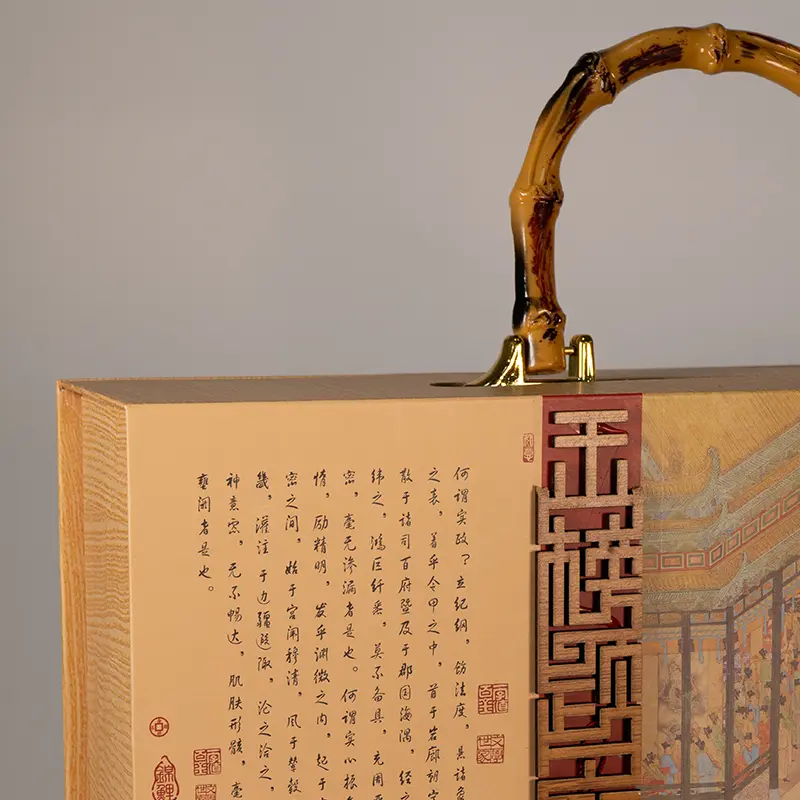 何谓实政?立纪纲,饬法度,悬诸象
之表,着乎令甲之中,首于岩廊朝宁
散于诸司百府暨及于郡国海隅,经之
纬之,鸿巨纤悉,莫不备具,充周
密,毫无渗漏者是也。何谓实心振
惰,励精明,发乎渊微之内,起于
密之间,始于宫闱穆清,风于辇毂
畿,灌注于边疆遐陬,沦之洽之,
神意虑,无不畅达,肌肤形骸,毫
壅阏者是也。